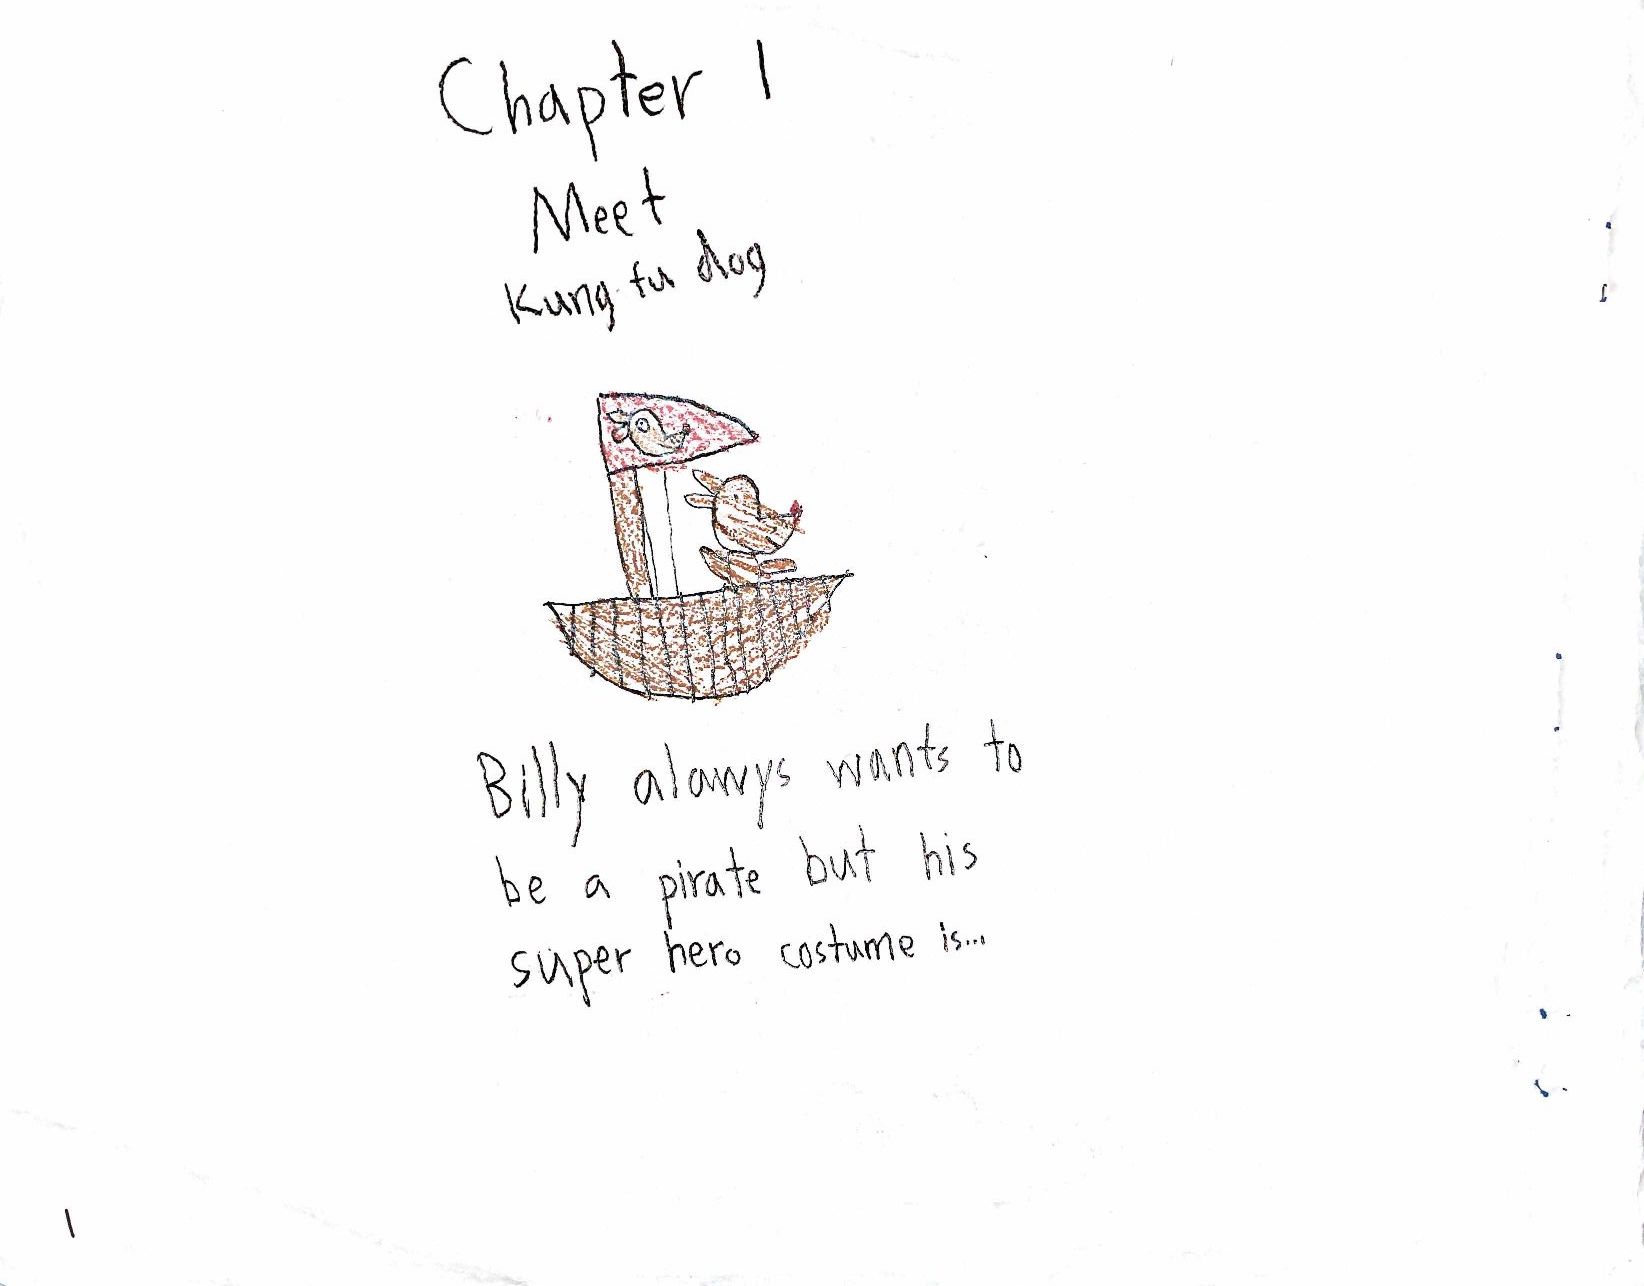 Chapter 1
Meet
Kung fu dog
Billy alawys wants to
be a pirate but his
super hero costume is...
1